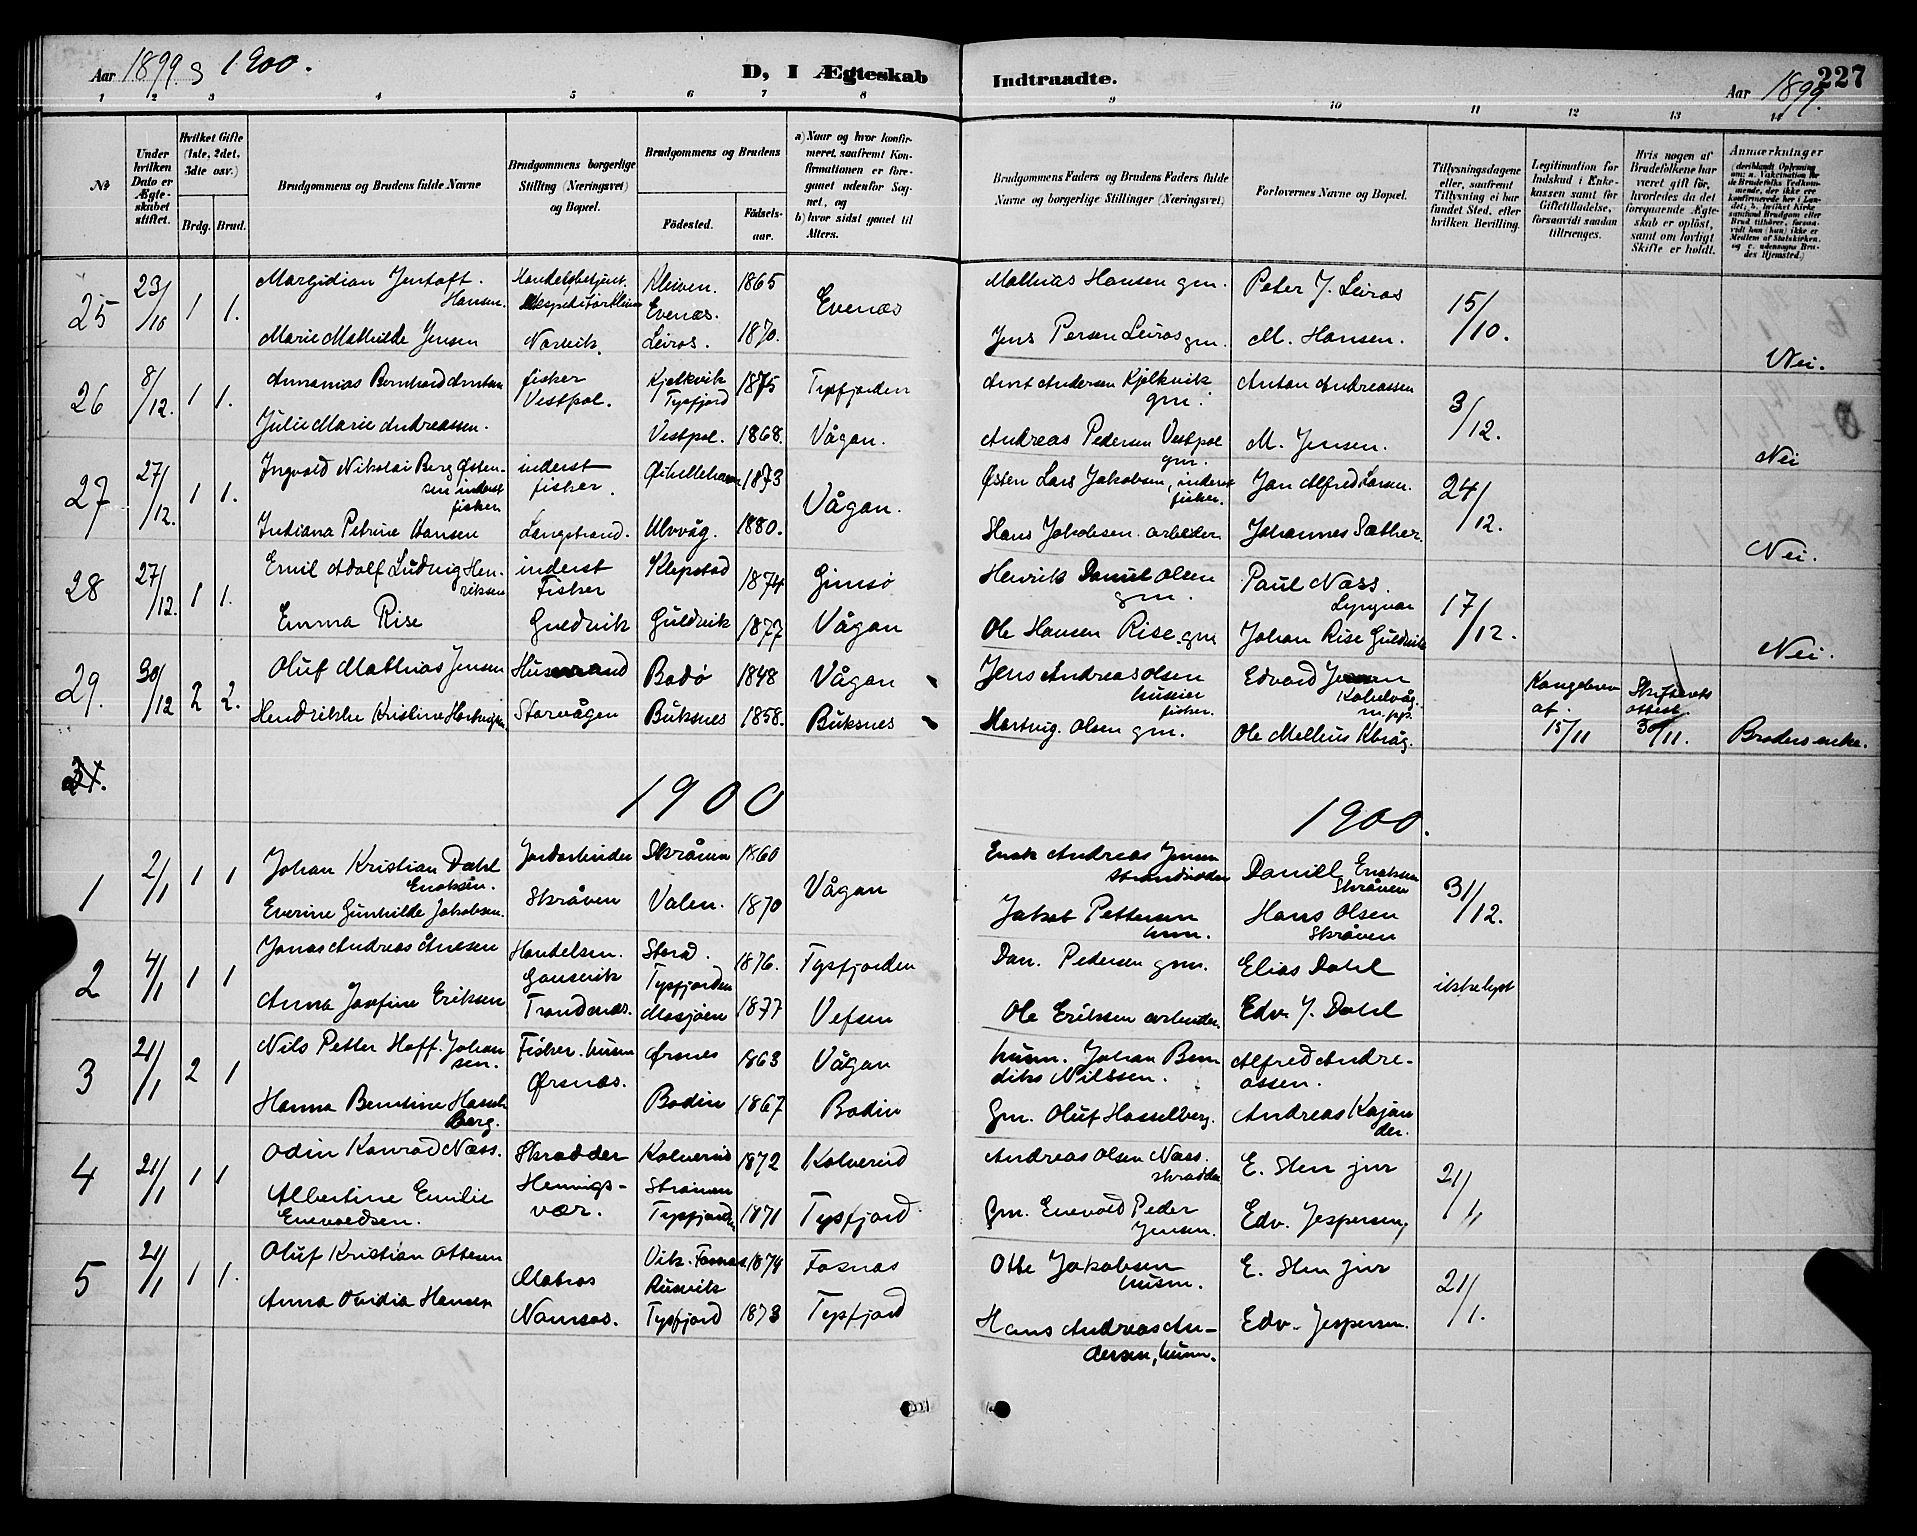 Aar 1899 og 1900.
D, I Ægteskab Indtraadte.
Aar 1899.
227
1 2 3 4 5 6 7 8 9 10 11 12 13 14
№
Under hvilken Dato er Ægteskabet stiftet.
Hvilket Gifte (1ste, 2det, 3dte osv.)
Brdg. Brud.
Brudgommens og Brudens fulde Navne
Brudgommens borgerlige Stilling (Næringsvei) og Bopæl.
Brudgommens og Brudens
Fødested.
Fødselsaar.
a) Naar og hvor konfirmeret, saafremt Konfirmationen er foregaaet udenfor Sognet, og
b) hvor sidst gaaet til Alters.
Brudgommens Faders og Brudens Faders fulde Navne og borgerlige Stillinger (Næringsvei)
Forlovernes Navne og Bopæl.
Tillysningsdagene eller, saafremt Tillysning ei har fundet Sted, efter hvilken Bevilling.
Legitimation for Indskud i Enkekassen samt for Giftetilladelse, forsaavidt saadan tiltrænges.
Hvis nogen af Brudefolkene har været gift før, hvorledes da det foregaaende Ægteskab er opløst, samt om lovligt Skifte er holdt.
Anmærkninger
25 23/10 1 1. Margidian Jentoft Hansen. Kleiven. Evenæs. 1865 Evenæs Mathias Hansen gm. Peter J. Leiros 15/10.
Marie Mathilde Jensen Narvik. Leiros. 1870. Jens Persen Leiros gm. M. Hansen. Nei.
26 8/12. 1 1. Annanias Bernhard Arntsen fisker Vestpol. Kjelkvik Tysfjord 1875 Tysfjorden Arnt Andersen Kjelkvik gm. Anton Andreassen 3/12.
Julie Marie Andreassen. Vestpol. 1868. Vågan. Andreas Pedersen Vestpol gm. M. Jensen. Nei
27 27/12. 1 1. Ingvald Nikolai Berg Østensen inderst fisker inderst fisker. 1873 Vågan. Østen Lars Jakobsen, inderst fisker. Jan Alfred Larsen. 24/12.
Indiana Petrine Hansen Langstrand. Ulvvåg. 1880. Hans Jakobsen arbeider Johannes Sæther. Nei.
28 27/12. 1 1. Emil Adolf Ludvig Henriksen inderst Fisker Klepstad 1874 Gimsø Henrik Daniel Olsen gm. Paul Næss. Lyngvær 17/12.
Emma Rise Guldvik Guldvik 1877 Vågan Ole Hansen Rise gm Johan Rise Guldvik Nei.
29. 30/12 2 2. Oluf Mathias Jensen Husmand Bodø 1848 Vågan Jens Andreas Olsen fisker. Edvard Jensen Kabelvåg Kongebrev af 15/11 Skifterets attest 30/11.
Hendrikke Kristine Hartvigsen Storvågen Buksnes 1858. Buksnes Hartvig Olsen gm. Ole Mellius Kbvåg. Broders enke.
1900 1900.
1 2/1 1 1 Johan Kristian Dahl Enoksen. Jordarbeider Skråven Skråven 1860 Vågan Enok Andreas Jensen strandsidder Daniel Enoksen Skråven 31/12.
Everine Gunhilde Jakobsen. Valen. 1870 Jakob Pettersen husm. Hans Olsen Skråven
2 4/1 1 1 Jonas Andreas Ånesen Handelsm. Stord. Tysfjorden 1876. Tysfjorden Dan. Pedersen gm. Elias Dahl ikke lyst
Anna Josefine Eriksen Trondenæs. Mosjøen 1877 Vefsen Ole Eriksen arbeider. Edv. J. Dahl
3 21/1 2 1 Nils Petter Hoff Johansen. Fisker. husm Ørsnæs. Ørsnes 1863 Vågan husm. Johan Bendiks Nilssen. Alfred Andreassen.
Hanna Berntine Hasselberg. Bodin 1867 Bodin Gm. Oluf Hasselberg. Andreas Kajander.
4 21/1 1 1 Odin Konrad Næss. Skrædder Henningsvær. Kolvereid 1872 Kolvereid Andreas Olsen Næss. skrædder E. Sten jur 21/1
Albertine Emilie Enevoldsen. Strømen Tysfjorden 1871 Tysfjord Gm. Enevold Peder Jensen. Edv. Jespersen,
5 21/1 1 1. Oluf Kristian Ottesen Matros Namsos. Vik. Fosnæs 1874 Fosnæs Otte Jakobsen husm. E. Sten jur 21/1.
Anna Ovidia Hansen Rusvik Tysfjord 1873 Tysfjord Hans Andreas Andersen, husm. Edv. Jespersen.